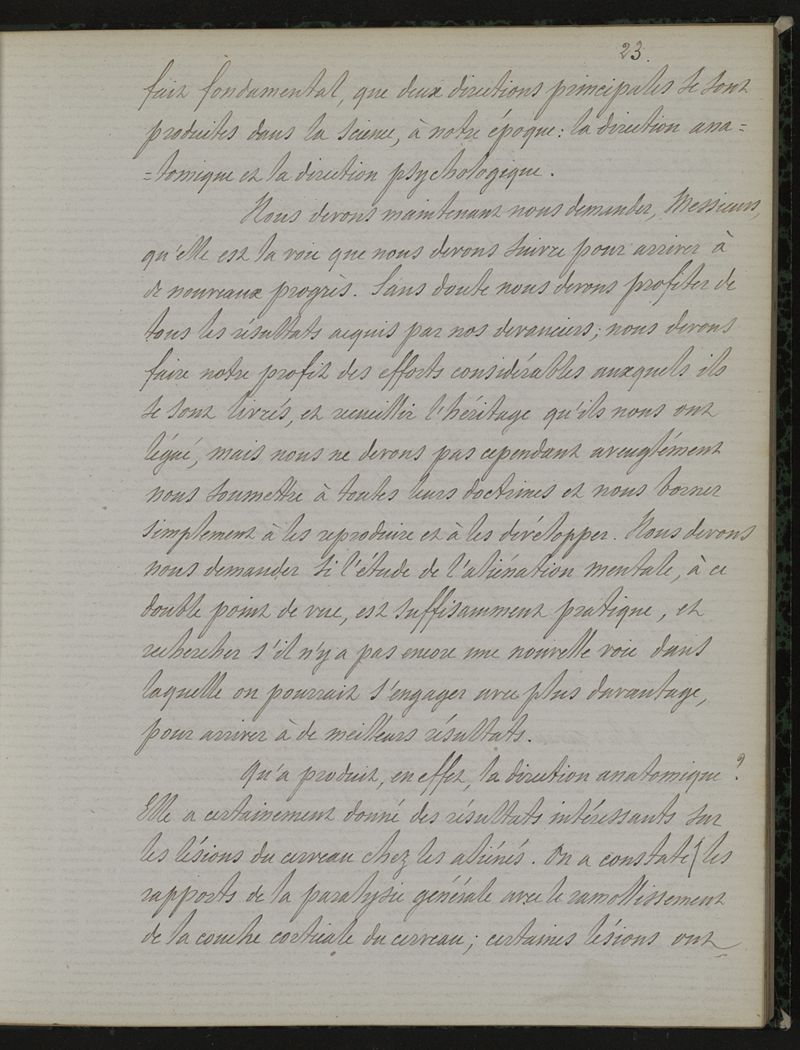 23.
fait fondamental, que deux directions principales se sont
produites dans la science, à notre époque: la direction ana=
=tomique et la direction psychologique.
Nous devons maintenant nous demander, Messieurs,
qu'elle est la voie que nous devons suivre pour arriver à
de nouveaux progrès. Sans doute nous devons profiter de
tous les résultats acquis par nos devanciers; nous devons
faire notre profit des efforts considérables auxquels ils
se sont livrés, et recueillir l'héritage qu'ils nous ont
légué, mais nous ne devons pas cependant aveuglément
nous soumettre à toutes leurs doctrines et nous borner
simplement à les reproduire et à les développer. Nous devons
nous demander si l'étude de l'aliénation mentale, à ce
double point de vue, est suffisamment pratique, et
rechercher s'il n'y a pas encore une nouvelle voie dans
laquelle on pourrait s'engager avec plus davantage,
pour arriver à de meilleurs résultats.
Qu'a produit, en effet, la direction anatomique?
Elle a certainement donné des résultats intéressants sur
les lésions du cerveau chez les aliénés. On a constaté les
rapports de la paralysie générale avec le ramollissement
de la couche corticale du cerveau; certaines lésions ont